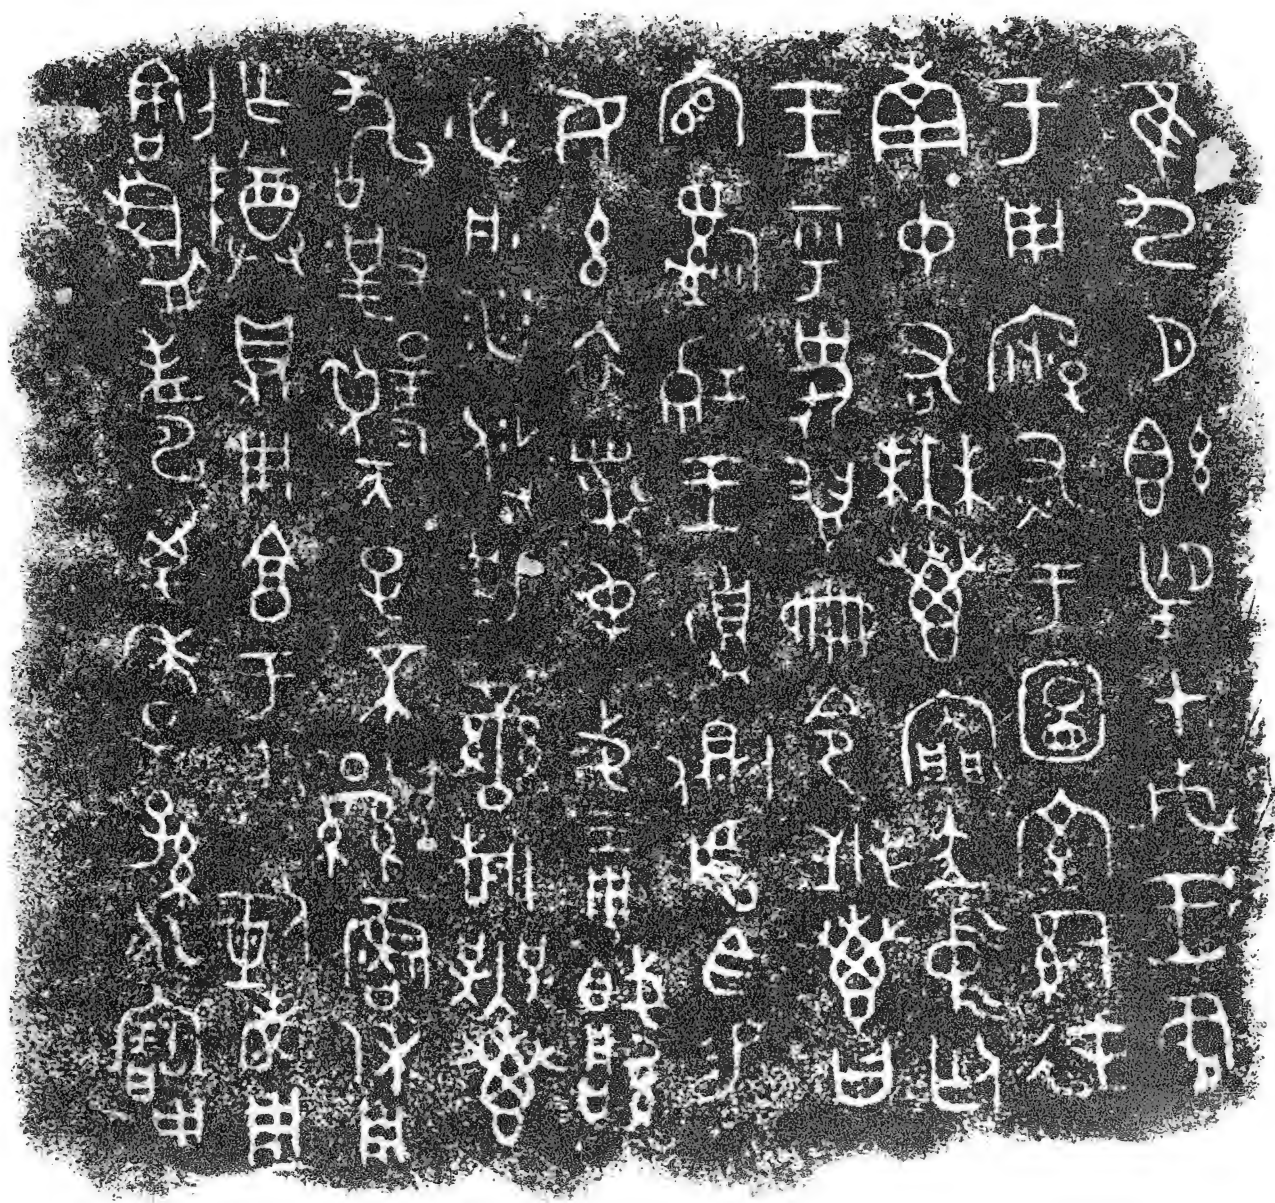 隹九月既望甲戌王各
于周廟述于圖室嗣徒
南中右無叀內門立中廷
王乎史翏册令無叀曰
官嗣穆王遉側虎臣易
女玄衣黹屯戈琱㦸厚
必彤沙攸勒䜌旂無叀
敢對揚天子不顯魯休用
乍尊鼎用享于朕剌考用
割眉壽萬年子孫永寶用